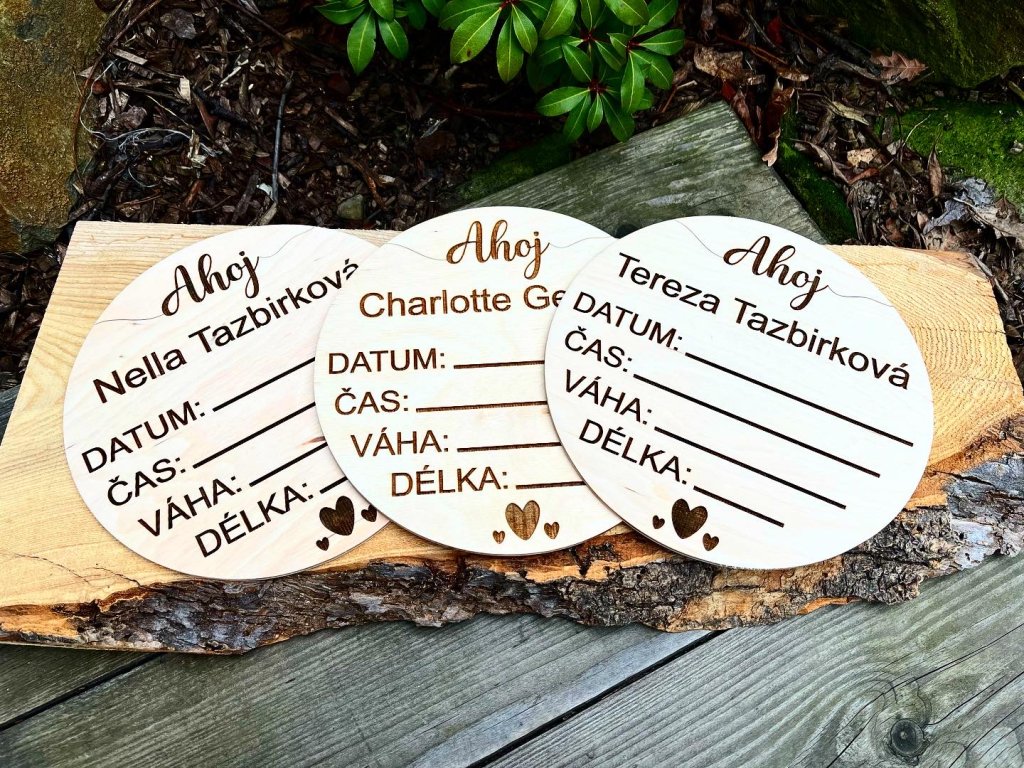 Ahoj
Nella Tazbirková
DATUM:
ČAS:
VÁHA:
DÉLKA:
Ahoj
Charlotte
DATUM:
ČAS:
VÁHA:
DÉLKA:
Ahoj
Tereza Tazbirková
DATUM:
ČAS:
VÁHA:
DÉLKA: